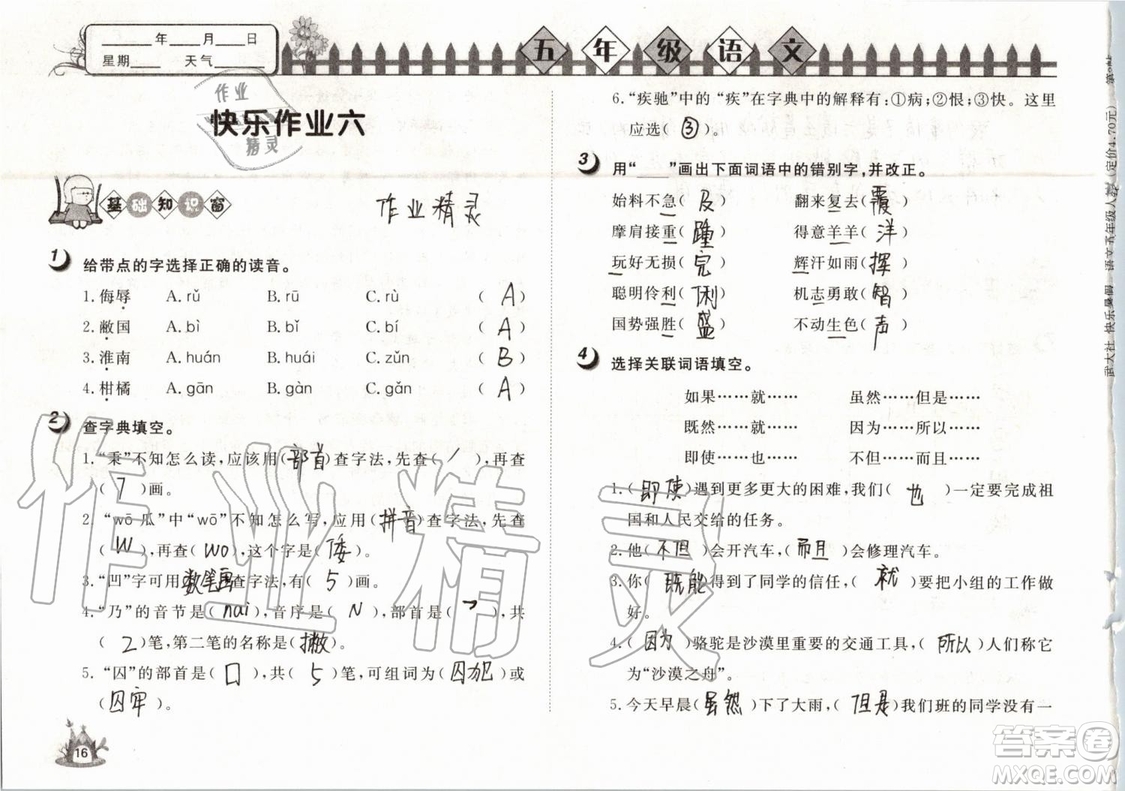 ____年____月____日
星期____ 天气____
五年级语文
作业
快乐作业六
精灵
基础知识窗
作业精灵
1 给带点的字选择正确的读音。
1. 侮辱 A. rǔ B. rū C. rù ( A )
2. 敝国 A. bì B. bǐ C. bí ( A )
3. 淮南 A. huán B. huái C. zǔn ( B )
4. 柑橘 A. gān B. gàn C. gǎn ( A )
2 查字典填空。
1. “秉”不知怎么读，应该用(部首)查字法，先查(丿)，再查
( 7 )画。
2. “wō 瓜”中“wō”不知怎么写，应用(拼音)查字法，先查
( W )，再查( wo )，这个字是( 倭 )。
3. “凹”字可用(数笔画)查字法，有( 5 )画。
4. “乃”的音节是( nai )，音序是( N )，部首是( ㇋ )，共
( 2 )笔，第二笔的名称是( 撇 )。
5. “囚”的部首是( 口 )，共( 5 )笔，可组词为( 囚犯 )或
( 囚牢 )。
16
6. “疾驰”中的“疾”在字典中的解释有：①病；②恨；③快。这里
应选( ③ )。
3 用“____”画出下面词语中的错别字，并改正。
始料不急( 及 ) 翻来复去( 覆 )
摩肩接重( 踵 ) 得意羊羊( 洋 )
玩好无损( 完 ) 辉汗如雨( 挥 )
聪明伶利( 俐 ) 机志勇敢( 智 )
国势强胜( 盛 ) 不动生色( 声 )
4 选择关联词语填空。
如果……就…… 虽然……但是……
既然……就…… 因为……所以……
即使……也…… 不但……而且……
1. ( 即使 )遇到更多更大的困难，我们( 也 )一定要完成祖
国和人民交给的任务。
2. 他( 不但 )会开汽车，( 而且 )会修理汽车。
3. 你( 既能 )得到了同学的信任，( 就 )要把小组的工作做
好。
4. ( 因为 )骆驼是沙漠里重要的交通工具，( 所以 )人们称它
为“沙漠之舟”。
5. 今天早晨( 虽然 )下了大雨，( 但是 )我们班的同学没有一
作业精灵
答案圈
MXQE.COM
武大社 快乐暑假 语文五年级人教(定价4.70元)